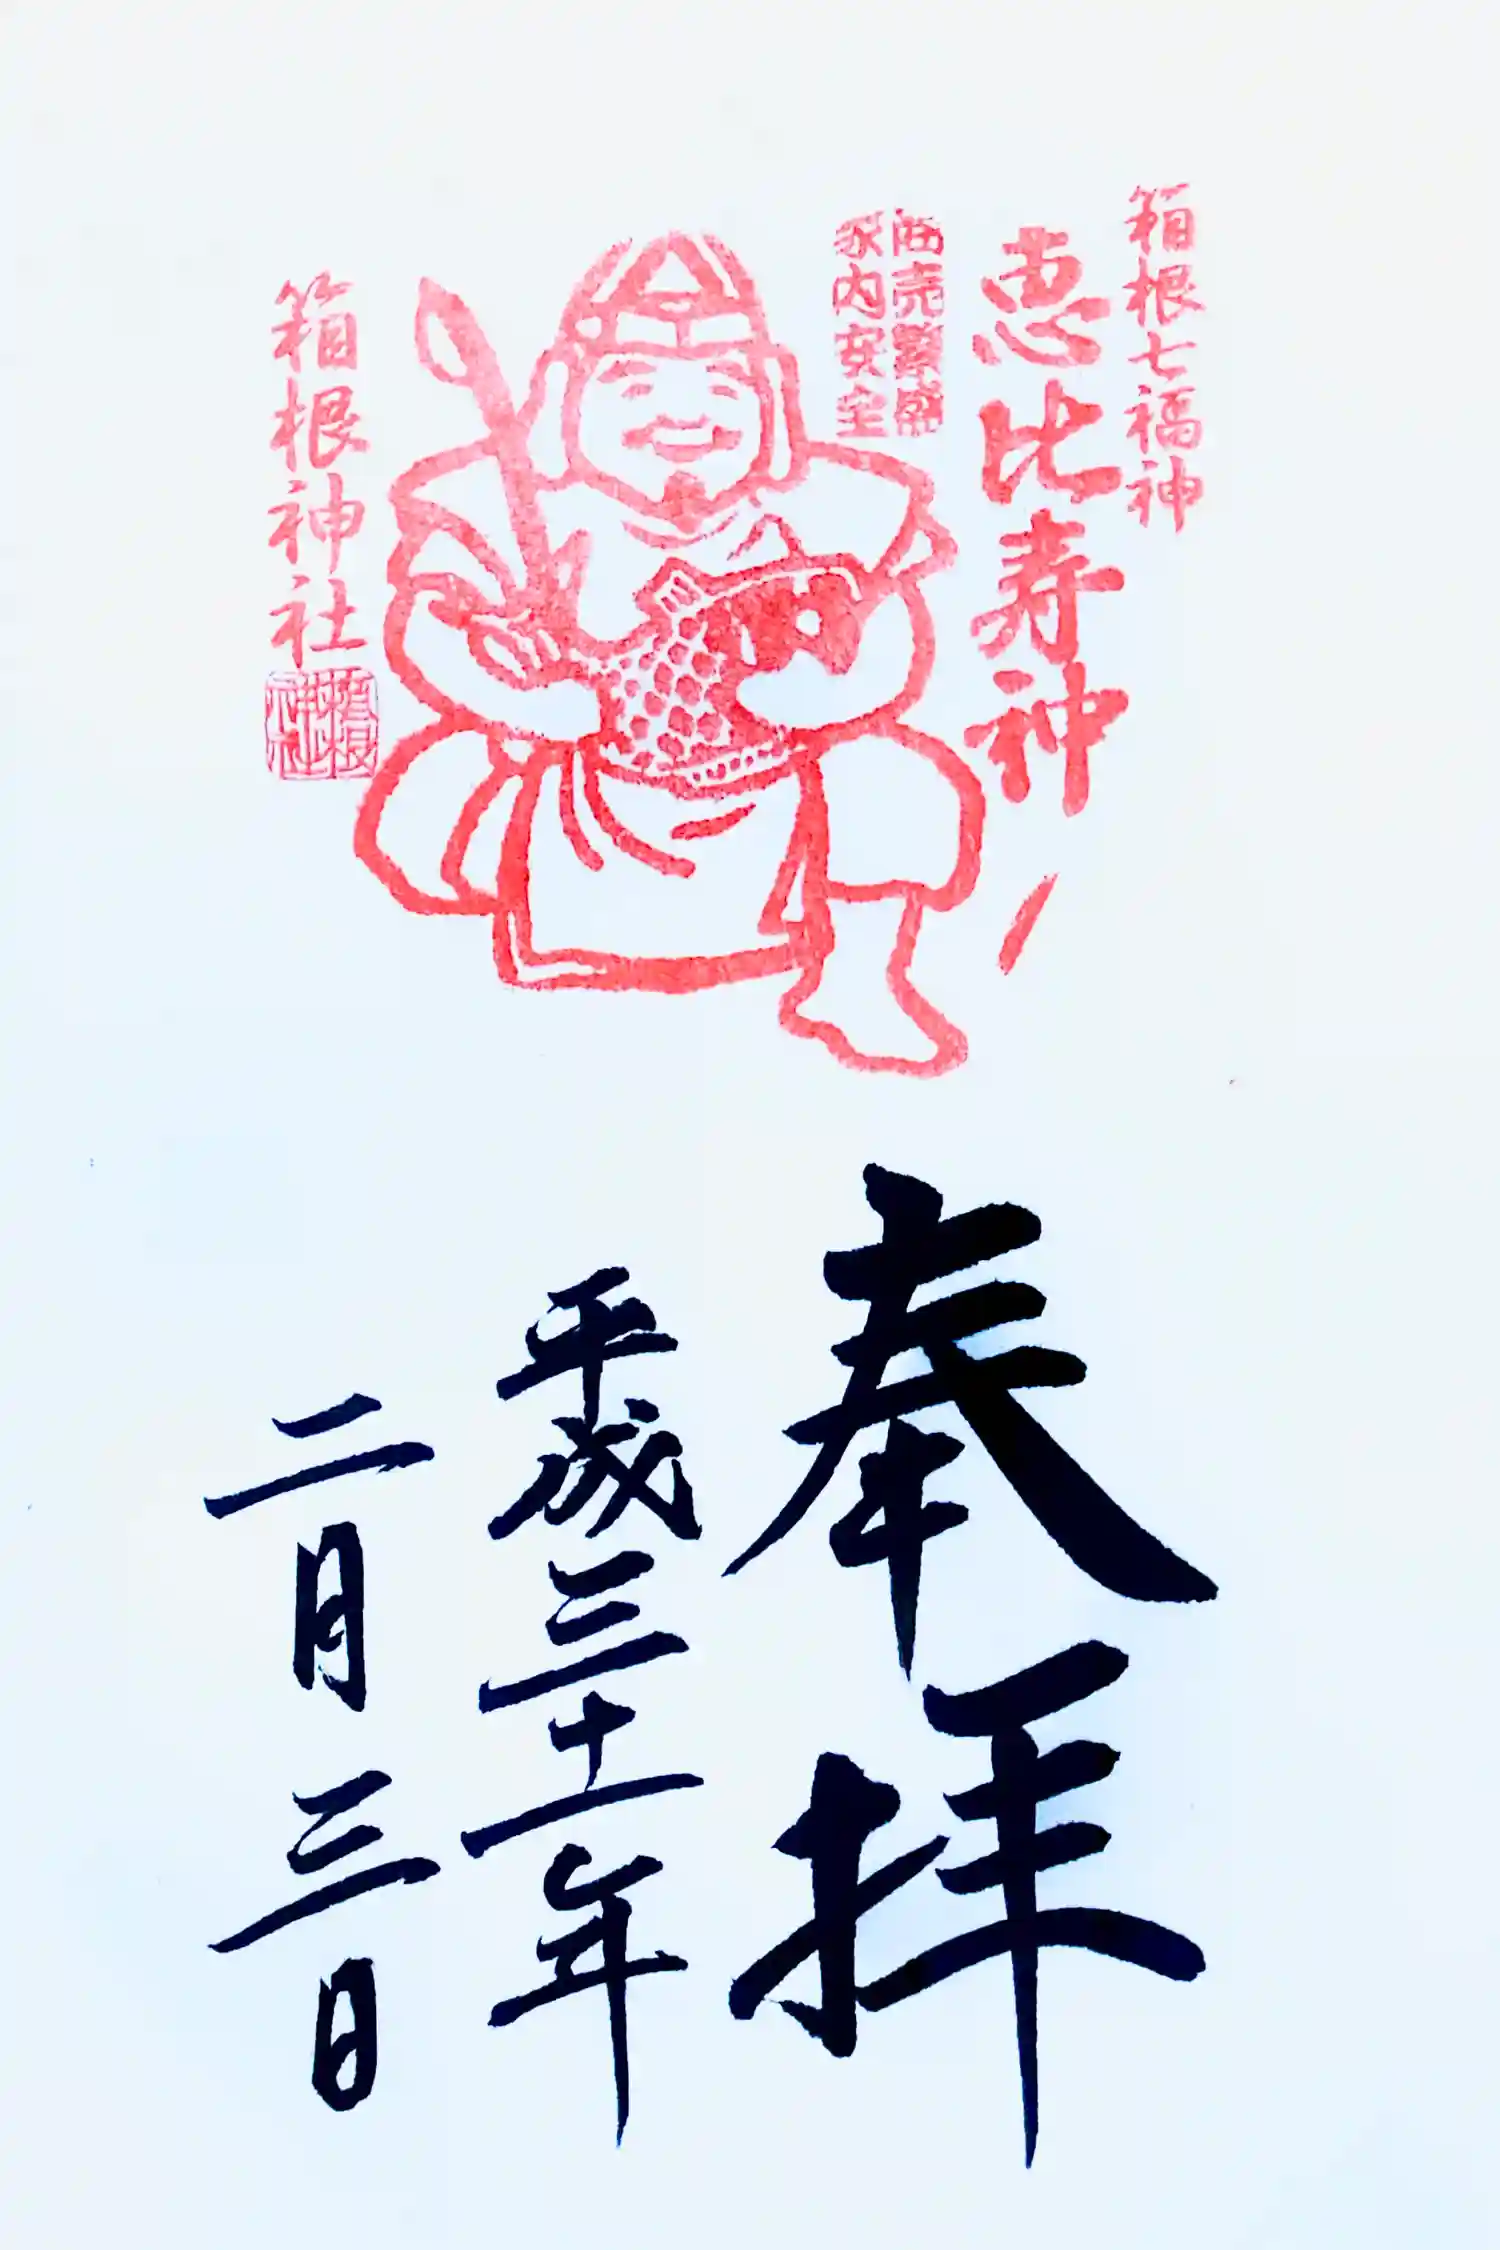 箱根七福神
恵比寿神
商売繁盛
家内安全
箱根神社
箱根神社
奉拝
平成三十一年
二月三日